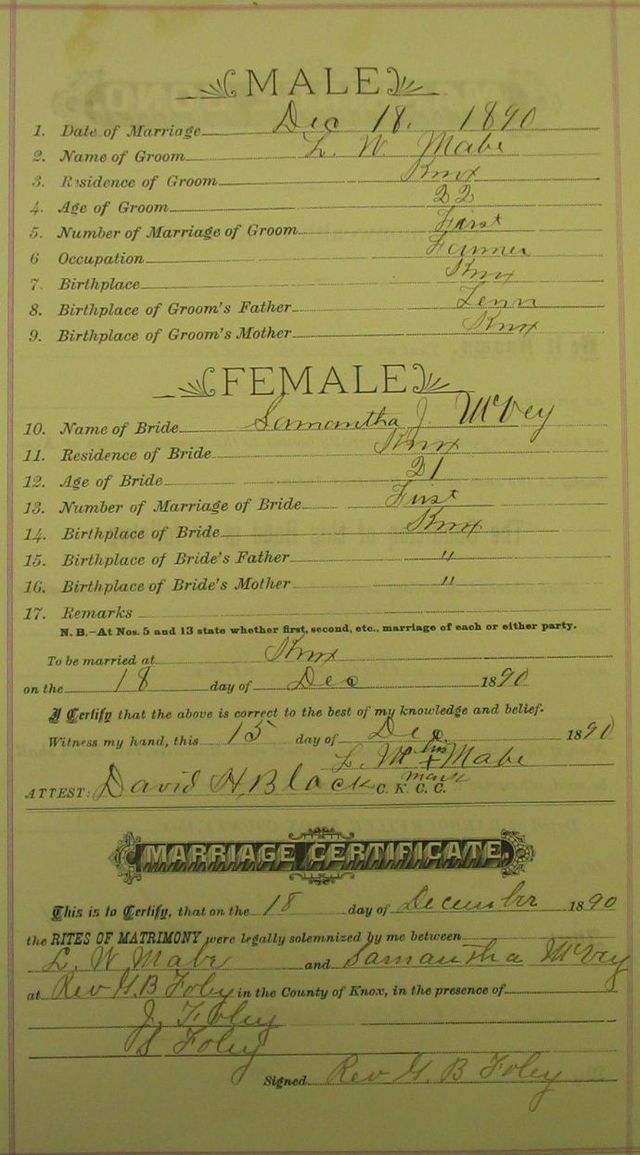 MALE
1. Date of Marriage Dec 18. 1890
2. Name of Groom L. W Mabe
3. Residence of Groom Knx
4. Age of Groom 22
5. Number of Marriage of Groom First
6 Occupation Farmer
7. Birthplace Knx
8. Birthplace of Groom's Father Tenn
9. Birthplace of Groom's Mother Knx
FEMALE
10. Name of Bride Samantha J McVey
11. Residence of Bride Knx
12. Age of Bride 21
13. Number of Marriage of Bride First
14. Birthplace of Bride Knx
15. Birthplace of Bride's Father "
16. Birthplace of Bride's Mother "
17. Remarks
N. B.—At Nos. 5 and 13 state whether first, second, etc., marriage of each or either party.
To be married at Knx
on the 18 day of Dec 1890
I Certify that the above is correct to the best of my knowledge and belief.
Witness my hand, this 15 day of Dec. 1890
L. W his + mark Mabe
ATTEST: David H. Black C. K. C. C.
MARRIAGE CERTIFICATE
This is to Certify, that on the 18 day of December 1890
the RITES OF MATRIMONY were legally solemnized by me between
L. W Mabe and Samantha McVey
at Rev G. B Foley in the County of Knox, in the presence of
J. Foley
S Foley
Signed Rev G. B Foley